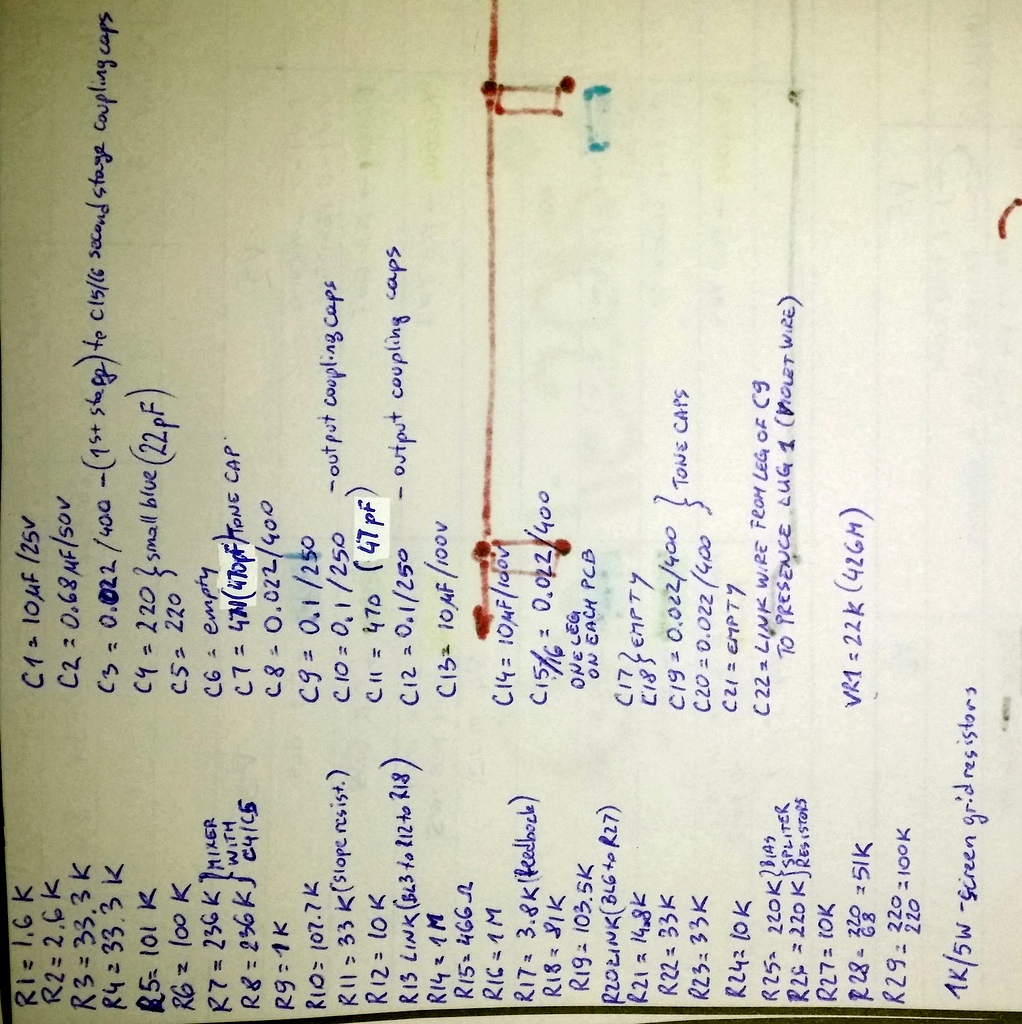 R1 = 1.6 K
R2 = 2.6 K
R3 = 33.3 K
R4 = 33.3 K
R5 = 101 K
R6 = 100 K
R7 = 236 K } MIXER
R8 = 236 K } WITH C4/C5
R9 = 1 K
R10 = 107.7 K
R11 = 33 K (slope resist.)
R12 = 10 K
R13 LINK (BL3 to R12 to R18)
R14 = 1 M
R15 = 466 Ω
R16 = 1 M
R17 = 3.8 K (feedback)
R18 = 81 K
R19 = 103.5 K
R20 LINK (BL6 to R27)
R21 = 14.8 K
R22 = 33 K
R23 = 33 K
R24 = 10 K
R25 = 220 K } BIAS SPLITER
R26 = 220 K } RESISTORS
R27 = 10K
R28 = 220 68 = 51K
R29 = 220 220 = 100K
1K/5W - screen grid resistors
C1 = 10 µF / 25V
C2 = 0.68 µF / 50V
C3 = 0.022 / 400 - (1st stage) to C15/16 second stage coupling caps
C4 = 220 } small blue (22pF)
C5 = 220
C6 = empty
C7 = 47N (470pF) TONE CAP.
C8 = 0.022/400
C9 = 0.1/250
C10 = 0.1/250 - output coupling caps
C11 = 470 (47pF)
C12 = 0.1/250 - output coupling caps
C13 = 10µF/100V
C14 = 10µF/100V
C15/16 = 0.022/400
ONE LEG
ON EACH PCB
C17 } EMPTY
C18
C19 = 0.022/400 } TONE CAPS
C20 = 0.022/400
C21 = EMPTY
C22 = LINK WIRE FROM LEG OF C9
TO PRESENCE LUG 1 (VIOLET WIRE)
VR1 = 22K (426H)